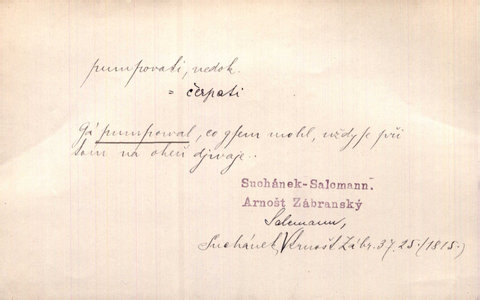 pumpovati, nedok.
= čerpati
Gá pumpowal, co gsem mohl, wždy se při
tom na oheň djwage.
Suchánek-Salomann.
Arnošt Zábranský
Salomann,
Suchánek, Arnošt Zábr. 37.25. (1815.)